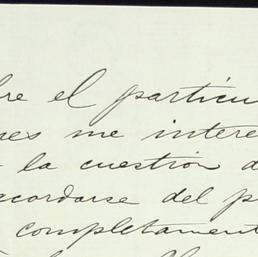 bre el particu
nes me intere
la cuestión d
acordarse del p
completament